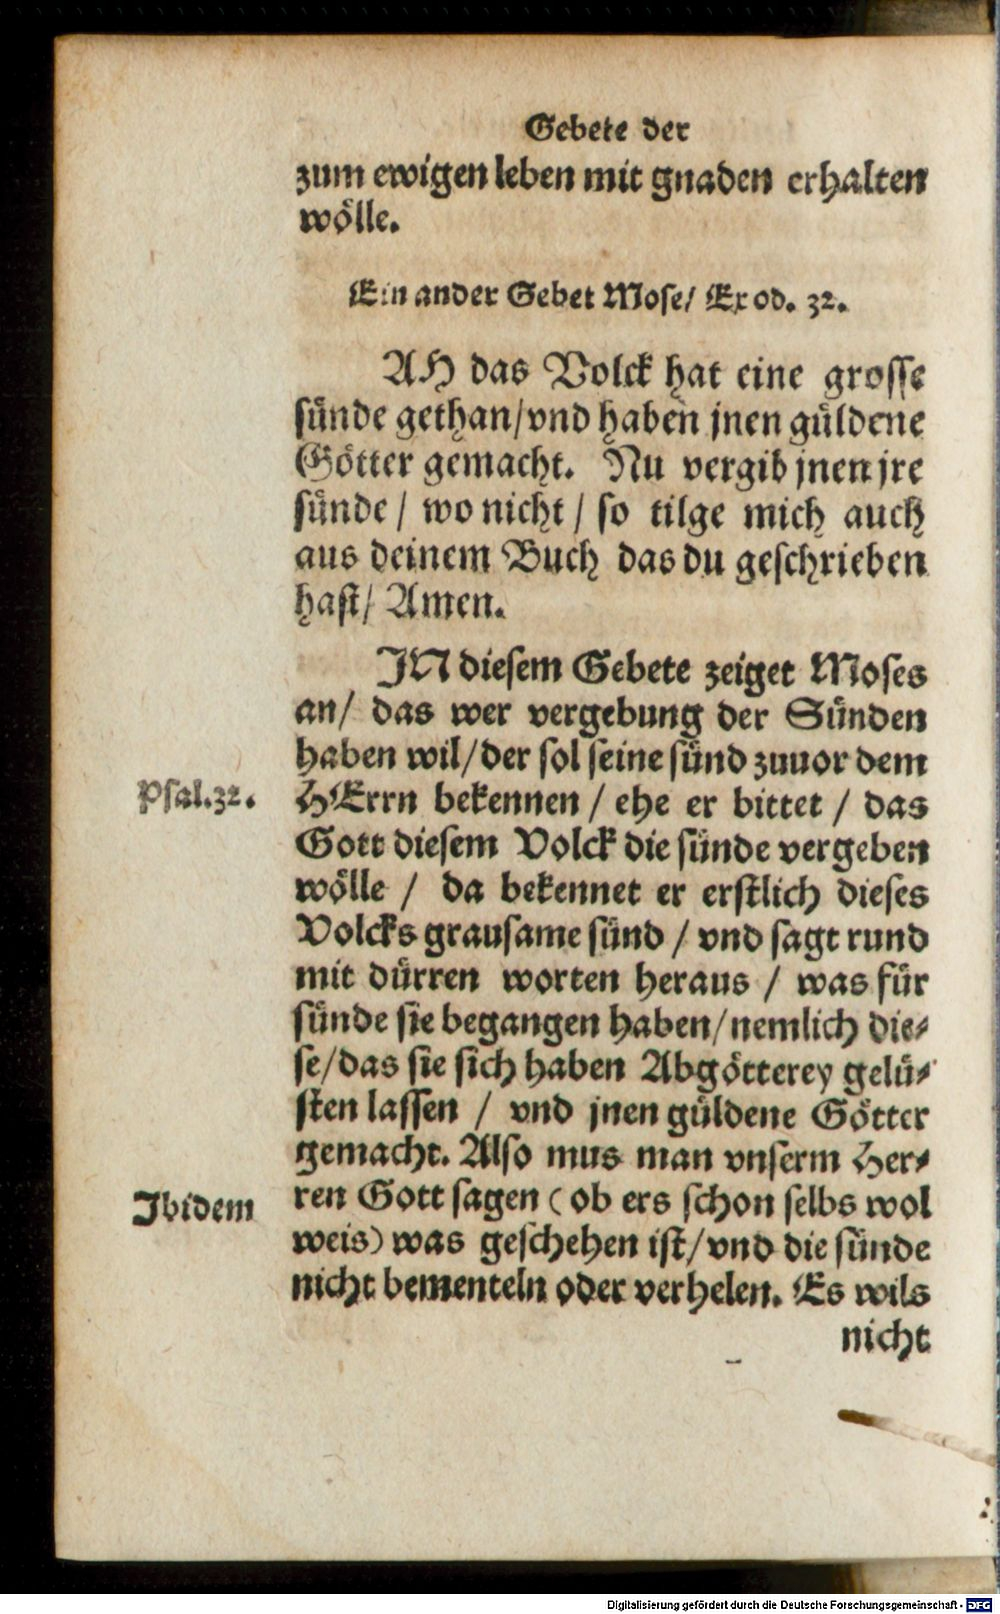 Gebete der
zum ewigen leben mit gnaden erhalten
wölle.
Ein ander Gebet Mose/ Exod. 32.
AH das Volck hat eine grosse
sünde gethan/vnd haben jnen güldene
Götter gemacht. Nu vergib jnen jre
sünde / wo nicht / so tilge mich auch
aus deinem Buch das du geschrieben
hast/ Amen.
IN diesem Gebete zeiget Moses
an/ das wer vergebung der Sünden
haben wil/der sol seine sünd zuuor dem
Psal.32.
HErrn bekennen / ehe er bittet / das
Gott diesem Volck die sünde vergeben
wölle / da bekennet er erstlich dieses
Volcks grausame sünd / vnd sagt rund
mit dürren worten heraus / was für
sünde sie begangen haben/nemlich die-
se/das sie sich haben Abgötterey gelü-
sten lassen / vnd jnen güldene Götter
gemacht. Also mus man vnserm Her-
Ibidem
ren Gott sagen (ob ers schon selbs wol
weis) was geschehen ist/vnd die sünde
nicht bementeln oder verhelen. Es wils
nicht
Digitalisierung gefördert durch die Deutsche Forschungsgemeinschaft - DFG